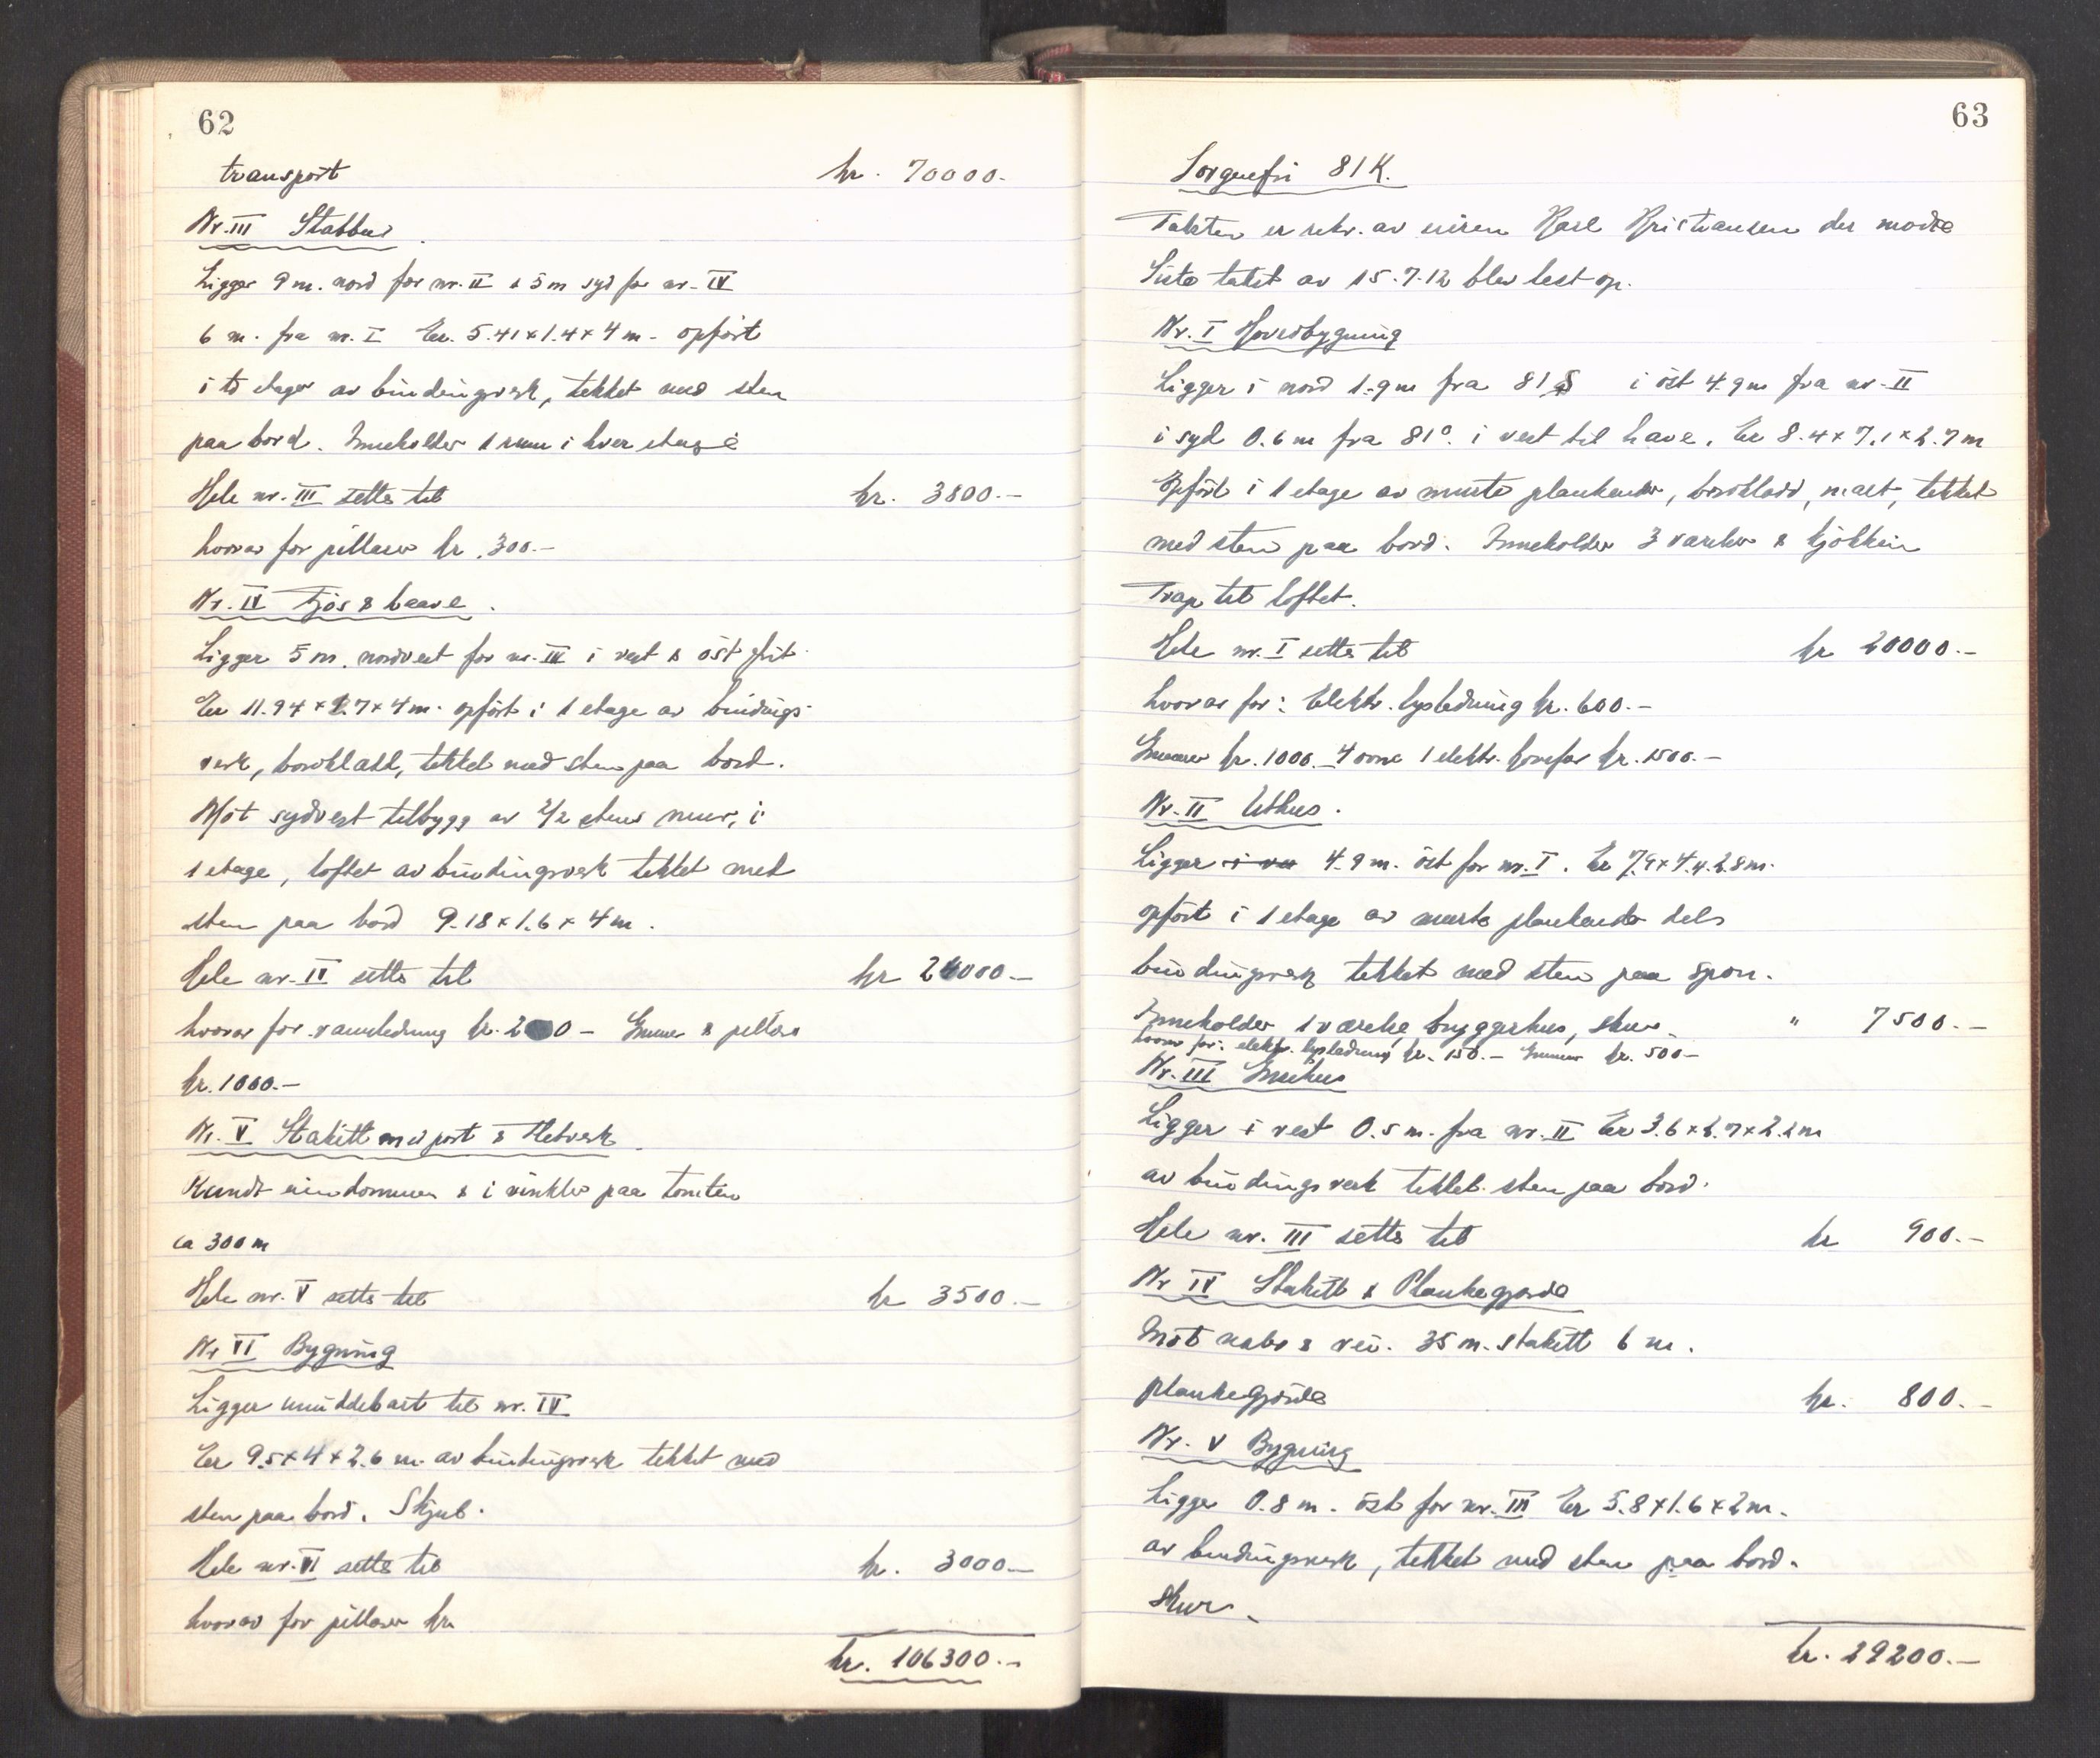 62
transport kr. 70000.-
Nr. III Stabbur.
Ligger 9 m. nord for nr. II & 5 m syd for nr. IV
6 m. fra nr. I Er. 5.41 x 1.4 x 4 m. opført
i to etager av bindingsverk, tekket med sten
paa bord. Inneholder 1 rum i hver etage
Hele nr. III settes til kr. 3800.-
hvorav for pillarer kr. 300.-
Nr. IV Fjøs & laave.
Ligger 5 m. nordvest for nr. III i vest & øst frit
Er 11.94 x 7 x 4 m. opført i 1 etage av bindings-
verk, bordklædt, tekket med sten paa bord.
Mot sydvest tilbygg av 1/2 stens mur, i
1 etage, loftet av bindingsverk tekket med
sten paa bord 9.18 x 1.6 x 4 m.
Hele nr. IV settes til kr 26000.-
hvorav for vannledning kr. 200 - Grunnmur & pillarer
kr. 1000.-
Nr. V Stakitt med port & Fletverk.
Rundt eiendommen & i vinkler paa tomten
ca 300 m
Hele nr. V settes til kr 3500.-
Nr VI Bygning
Ligger umiddelbart til nr. IV
Er 9.5 x 4 x 2.6 m. av bindingsverk tekket med
sten paa bord. Skjul.
Hele nr. VI settes til kr. 3000.-
hvorav for pillarer kr
kr. 106300.-
63
Sorgenfri 81 K.
Takten er rekv. av eieren Karl Kristiansen der møtte
Siste takst av 15.7.12 blev lest op.
Nr. I Hovedbygning
Ligger i nord 1.9 m fra 81 S i øst 4.9 m fra nr. II
i syd 0.6 m fra 81°. i vest til have. Er 8.4 x 7.1 x 2.7 m
Opført i 1 etage av murte plankender, bordklædd, malt, tekket
med sten paa bord. Inneholder 3 værelser & kjøkken
Trap til loftet.
Hele nr. I settes til kr 20000.-
hvorav for: Elektr. lysledning kr. 600.-
Grunnmur kr. 1000.- 4 ovne 1 elektr. komfyr kr. 1500.-
Nr. II Uthus.
Ligger i ve 4.9 m. øst for nr. I. Er 7.9 x 4.4. 2.8 m.
opført i 1 etage av murte plankender dels
bindingsverk tekket med sten paa spon.
Inneholder 1 værelse, bryggerhus, skur. " 7500.-
hvorav for: elektr. lysledning kr. 150.- Grunnmur kr. 500-
Nr. III
Ligger i vest 0.5 m. fra nr. II Er 3.6 x 2.7 x 2.2 m
av bindingsverk tekket sten paa bord.
Hele nr. III settes til kr 900.-
Nr IV Stakitt & Plankegjerde
Mot nabo & vei. 35 m. stakitt 6 m.
plankegjerde kr. 800.-
Nr. V Bygning
Ligger 0.8 m. øst for nr. III Er 5.8 x 1.6 x 2 m.
av bindingsverk, tekket med sten paa bord.
Skur.
kr. 29200.-